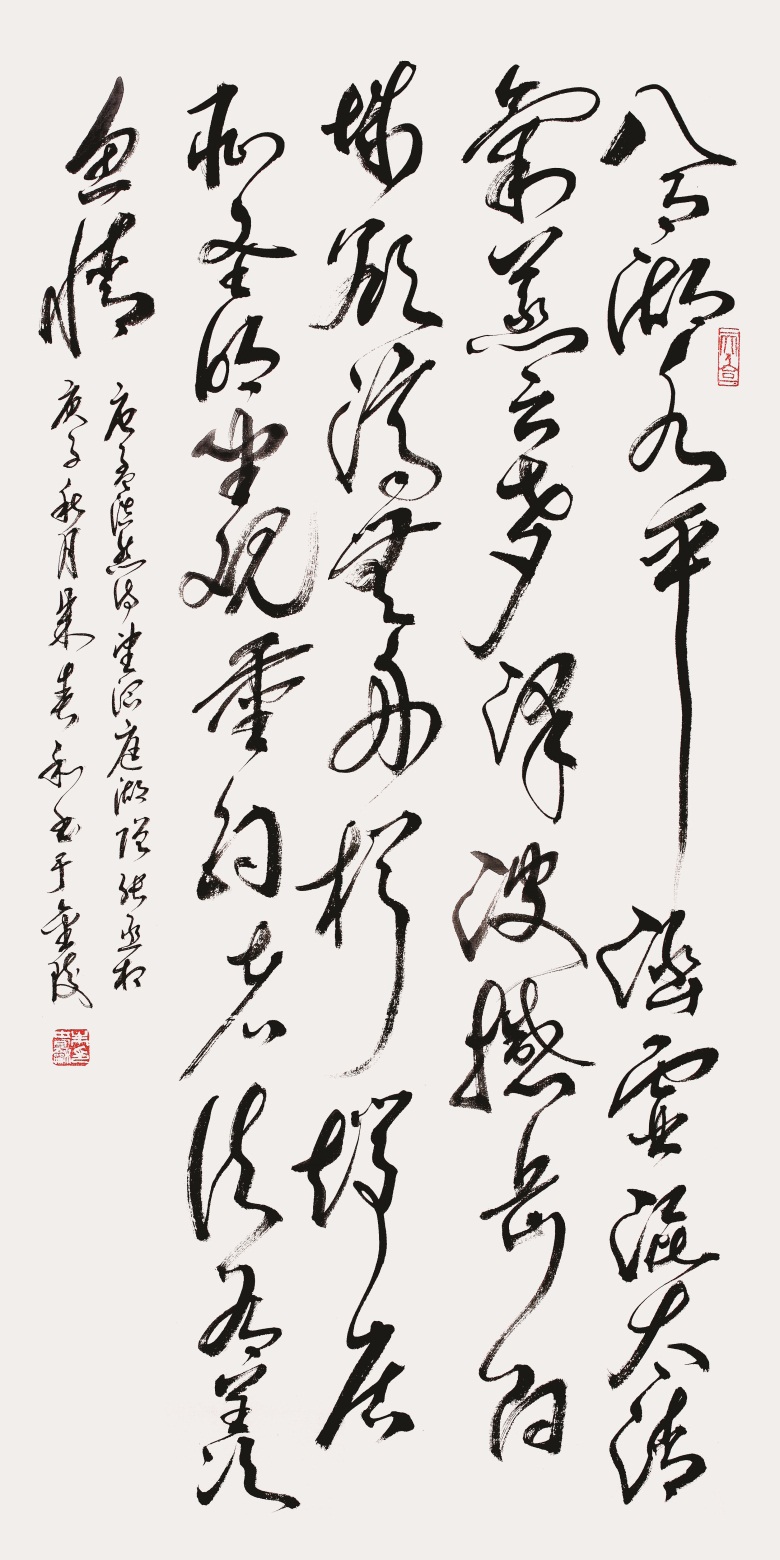 八月湖水平涵虚混太清
氣蒸云梦泽波撼岳阳
城欲濟無舟楫端居
耻圣明坐观垂钓者徒有羡
鱼情
唐孟浩然诗望洞庭湖赠张丞相
庚子秋月和书于金陵